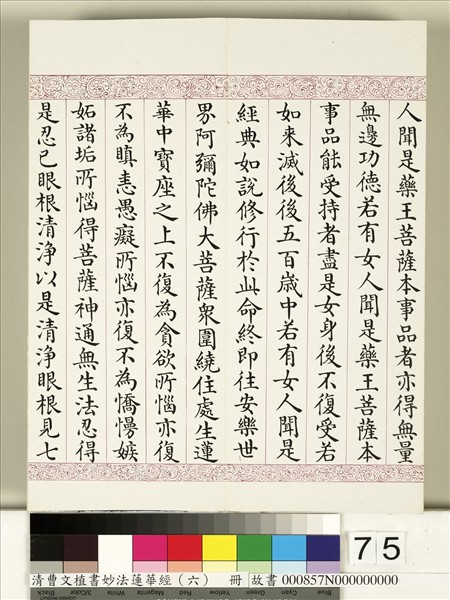 人聞是藥王菩薩本事品者亦得無量
無邊功德若有女人聞是藥王菩薩本
事品能受持者盡是女身後不復受若
如來滅後後五百歲中若有女人聞是
經典如說修行於此命終即往安樂世
界阿彌陀佛大菩薩衆圍繞住處生蓮
華中寶座之上不復為貪欲所惱亦復
不為瞋恚愚癡所惱亦復不為憍慢嫉
妬諸垢所惱得菩薩神通無生法忍得
是忍已眼根清淨以是清淨眼根見七
75
清曹文植書妙法蓮華經（六） 冊 故書 000857N000000000
Black 3/Color White Magenta Red Yellow Green Cyan Blue